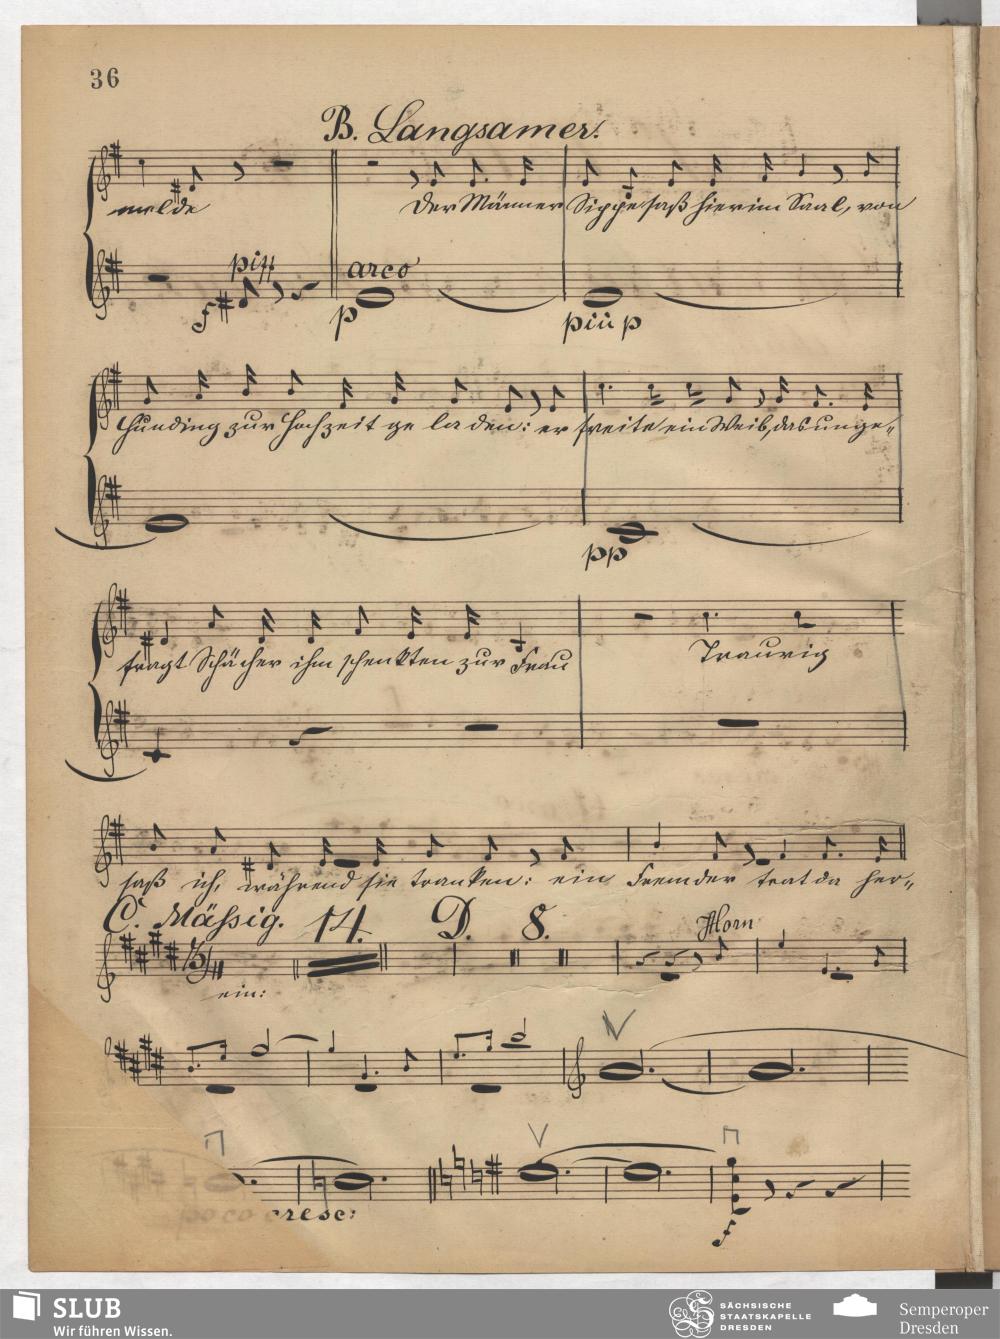 36
B. Langsamer.
melde Der Männer Sippe saß hier im Saal, von
pizz arco
f p più p
Hunding zur Hochzeit geladen: er freite ein Weib, das unge-
pp
fragt Schächer ihm schenkten zur Frau Traurig
saß ich, während sie tranken: ein Fremder trat da her-
C. Mäßig. 14. D. 8. Horn
ein:
poco cresc:
f
SLUB
Wir führen Wissen.
SÄCHSISCHE
STAATSKAPELLE
DRESDEN
Semperoper
Dresden